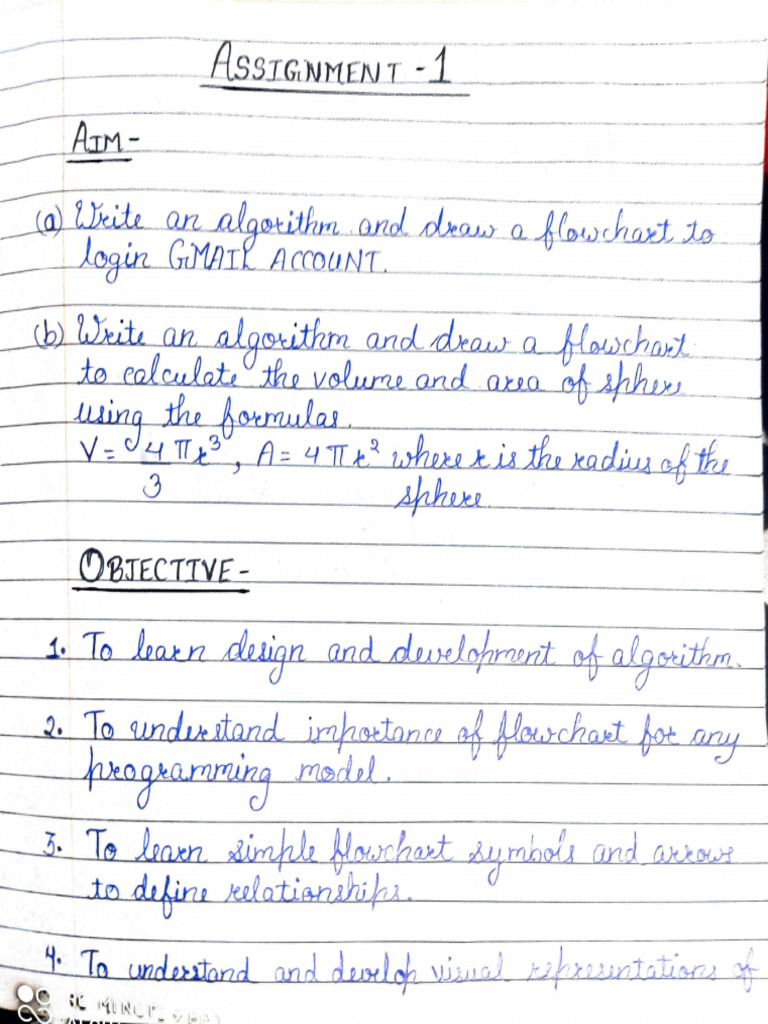 ASSIGNMENT - 1
AIM -
(a) Write an algorithm and draw a flowchart to
login GMAIL ACCOUNT.
(b) Write an algorithm and draw a flowchart
to calculate the volume and area of sphere
using the formulas.
V = 4πr³/3, A = 4πr² where r is the radius of the
sphere.
OBJECTIVE -
1. To learn design and development of algorithm.
2. To understand importance of flowchart for any
programming model.
3. To learn simple flowchart symbols and arrows
to define relationships.
4. To understand and develop visual representations of